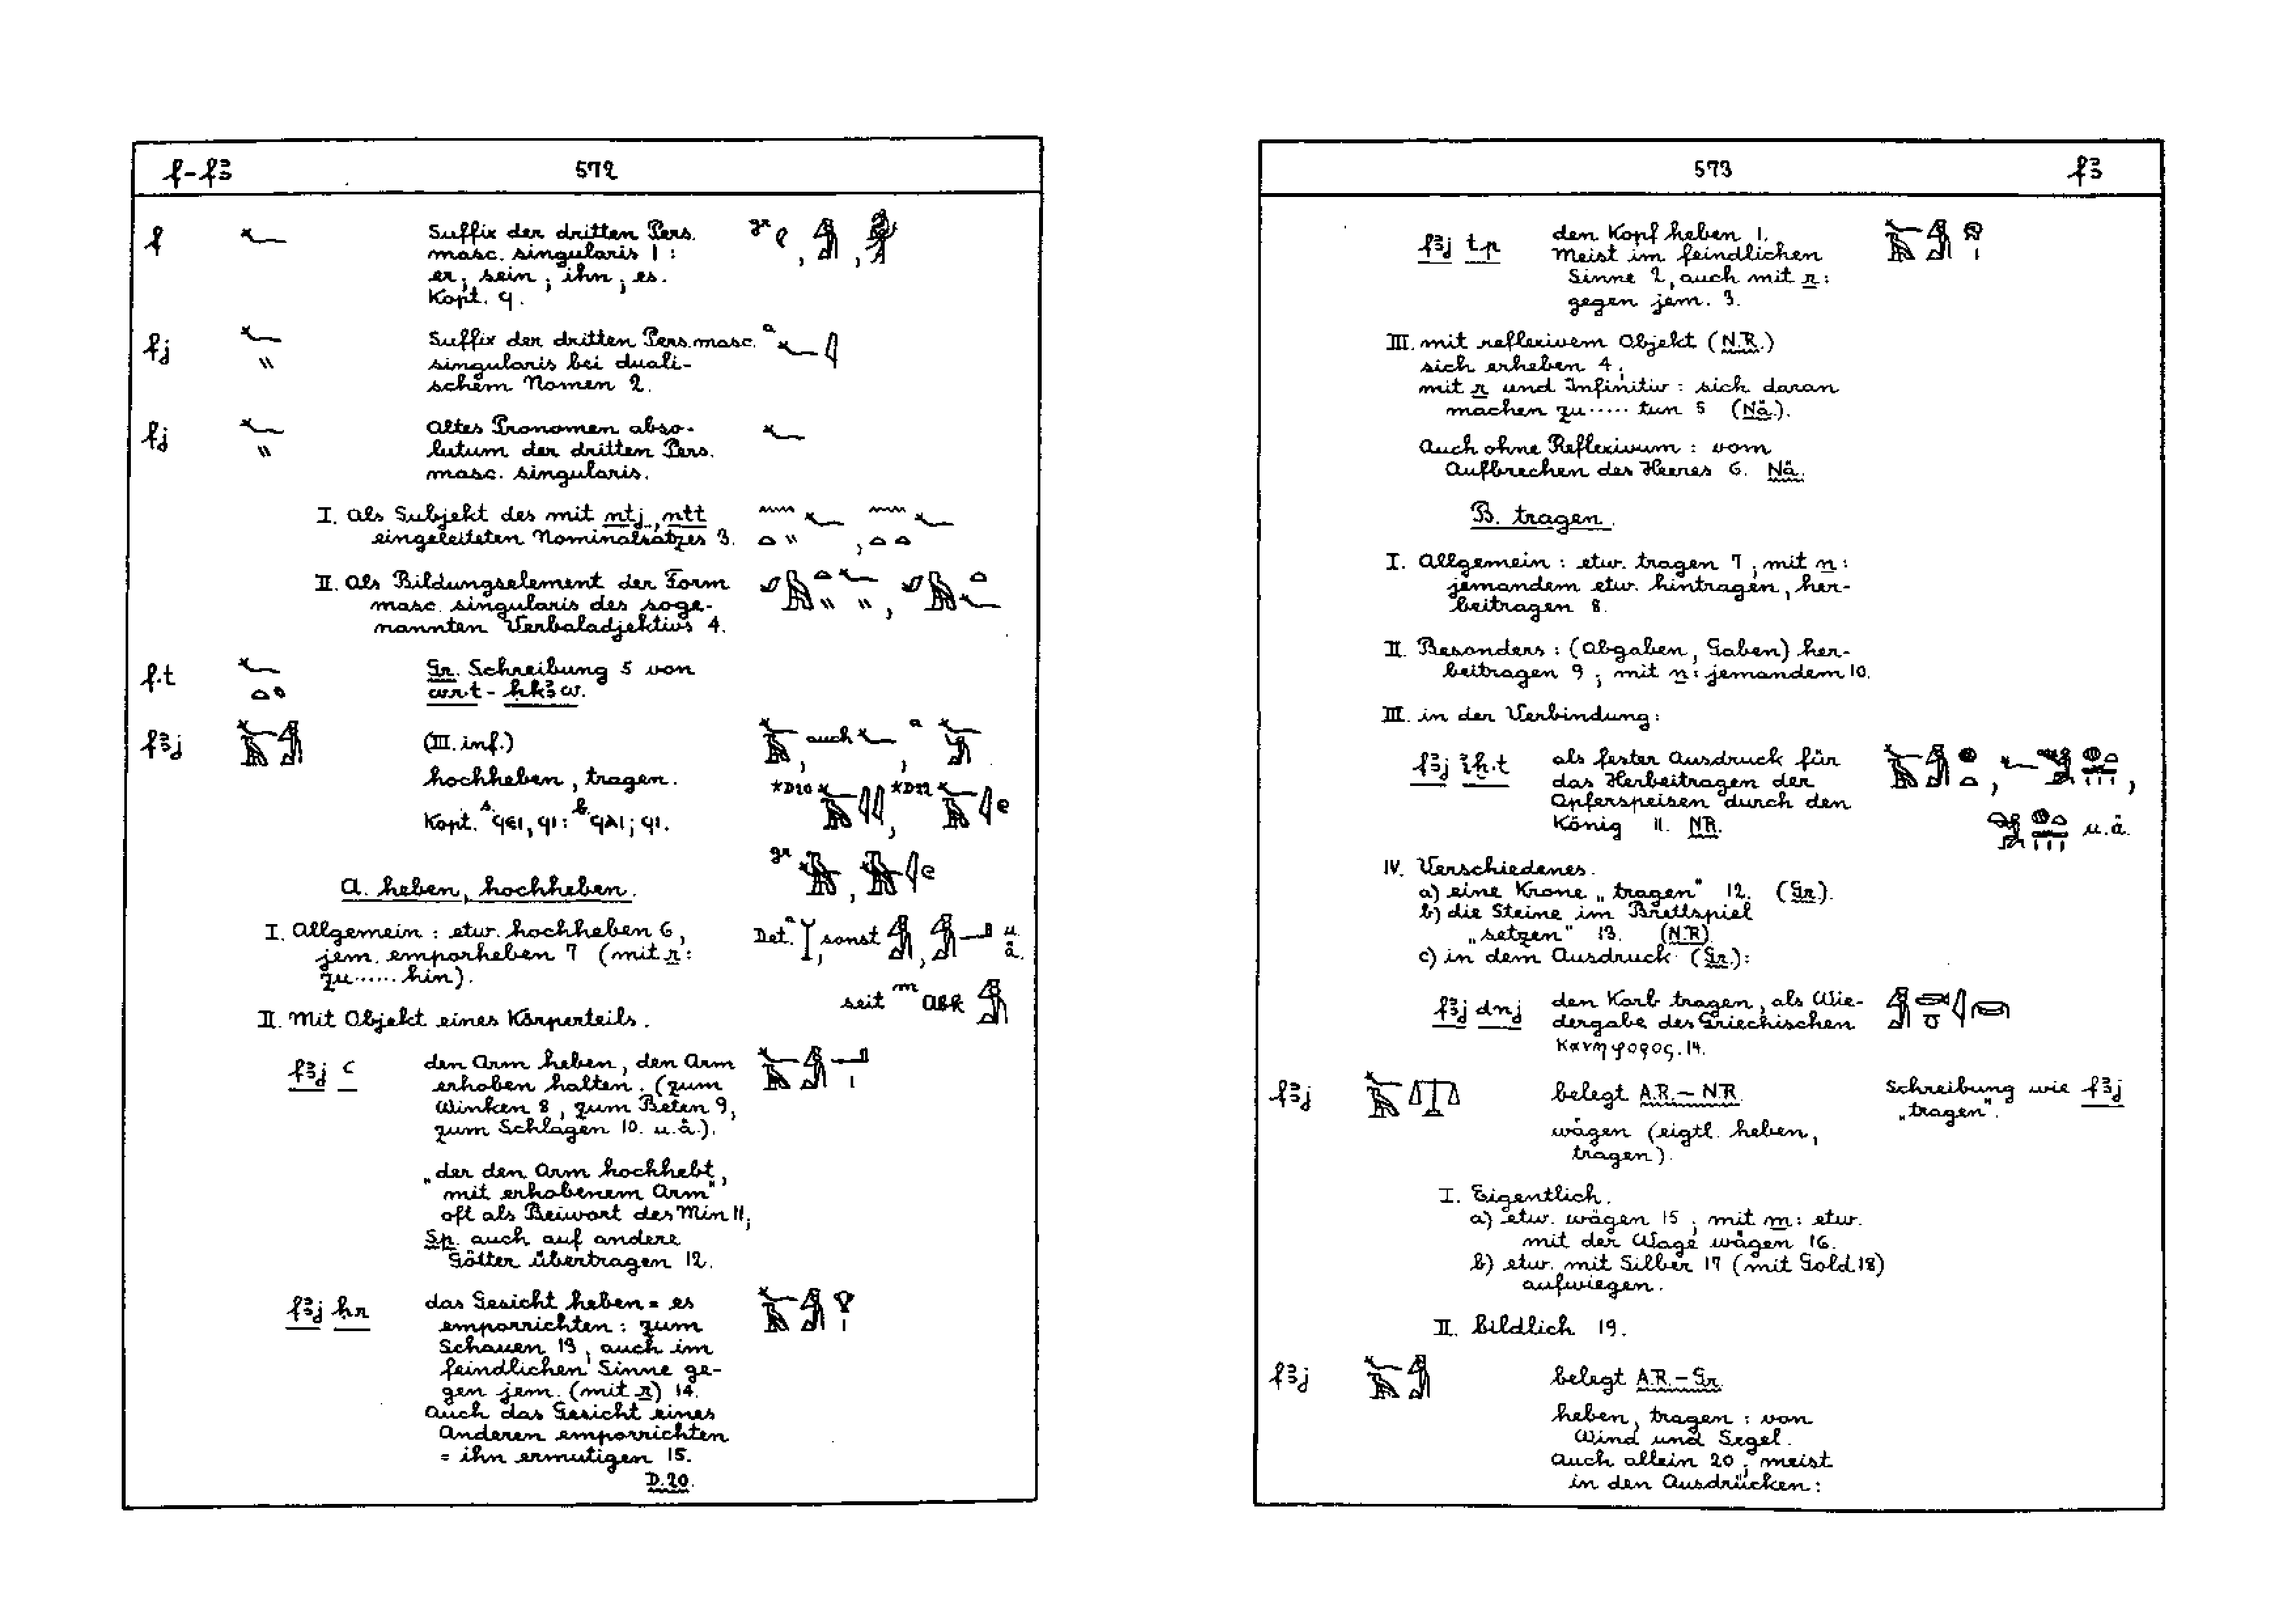 f-fꜣ 572
f 𓆑 Suffix der dritten Pers.
masc. singularis 1 :
er ; sein ; ihn ; es.
Kopt. ϥ.
fj 𓆑𓏭 Suffix der dritten Pers. masc.
singularis bei duali-
schem Nomen 2.
a 𓆑𓇋
fj 𓆑𓏭 Altes Pronomen abso-
lutum der dritten Pers.
masc. singularis.
𓆑
I. Als Subjekt des mit ntj, ntt
eingeleiteten Nominalsatzes 3.
𓈖𓏏𓏭𓆑, 𓈖𓏏𓏏𓆑
II. Als Bildungselement der Form
masc. singularis des soge-
nannten Verbaladjektivs 4.
f.t Gr. Schreibung 5 von
wr.t - ḥkꜣw.
fꜣj (III. inf.)
hochheben, tragen.
Kopt. s. ϥⲉⲓ, ϥⲓ : b. ϥⲁⲓ ; ϥⲓ.
auch 𓆑, a
*D20 , *D22
gr
A. heben, hochheben.
I. Allgemein : etw. hochheben 6,
jem. emporheben 7 (mit r :
zu ...... hin).
Det. a , sonst , u.
ä.
seit m A&R
II. Mit Objekt eines Körperteils.
fꜣj ꜥ den Arm heben, den Arm
erhoben halten. (zum
Winken 8, zum Beten 9,
zum Schlagen 10. u.ä.).
„der den Arm hochhebt,
mit erhobenem Arm"
oft als Beiwort des Min 11,
Sp. auch auf andere
Götter übertragen 12.
fꜣj ḥr das Gesicht heben = es
emporrichten : zum
Schauen 13, auch im
feindlichen Sinne ge-
gen jem. (mit r) 14.
Auch das Gesicht eines
Anderen emporrichten
= ihn ermutigen 15.
D.20.
573 fꜣ
fꜣj tp den Kopf heben 1.
Meist im feindlichen
Sinne 2, auch mit r :
gegen jem. 3.
III. mit reflexivem Objekt (N.R.)
sich erheben 4,
mit r und Infinitiv : sich daran
machen zu ..... tun 5 (Nä.).
Auch ohne Reflexivum : vom
Aufbrechen des Heeres 6. Nä.
B. tragen.
I. Allgemein : etw. tragen 7, mit n :
jemandem etw. hintragen, her-
beitragen 8.
II. Besonders : (Abgaben, Gaben) her-
beitragen 9 ; mit n : jemandem 10.
III. in der Verbindung :
fꜣj iḫ.t als fester Ausdruck für
das Herbeitragen der
Opferspeisen durch den
König 11. NR.
u.ä.
IV. Verschiedenes.
a) eine Krone „tragen" 12. (Gr.).
b) die Steine im Brettspiel
„setzen" 13. (NR)
c) in dem Ausdruck (Gr.) :
fꜣj dnj den Korb tragen, als Wie-
dergabe des Griechischen
κανηφορος. 14.
fꜣj belegt A.R. – N.R.
wägen (eigtl. heben,
tragen).
Schreibung wie fꜣj
„tragen".
I. Eigentlich.
a) etw. wägen 15 ; mit m : etw.
mit der Wage wägen 16.
b) etw. mit Silber 17 (mit Gold 18)
aufwiegen.
II. bildlich 19.
fꜣj belegt A.R. – Gr.
heben, tragen : von
Wind und Segel.
Auch allein 20 ; meist
in den Ausdrücken :